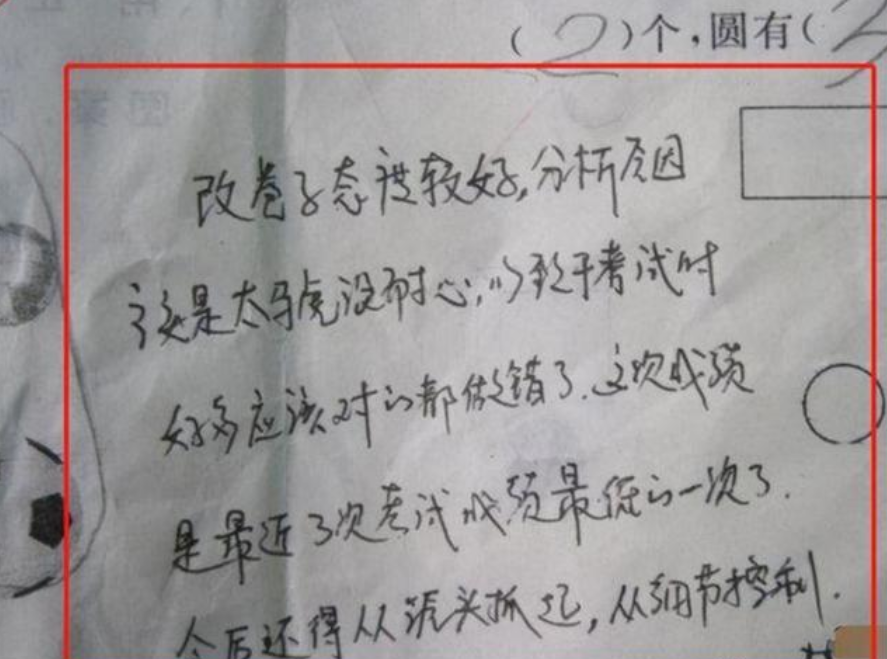 (2)个,圆有(3
改卷子态度较好,分析原因
应该是太马虎没耐心,以致于考试时
好多应该对的都做错了.这次成绩
是最近3次考试成绩最低的一次了.
今后还得从源头抓起,从细节控制.